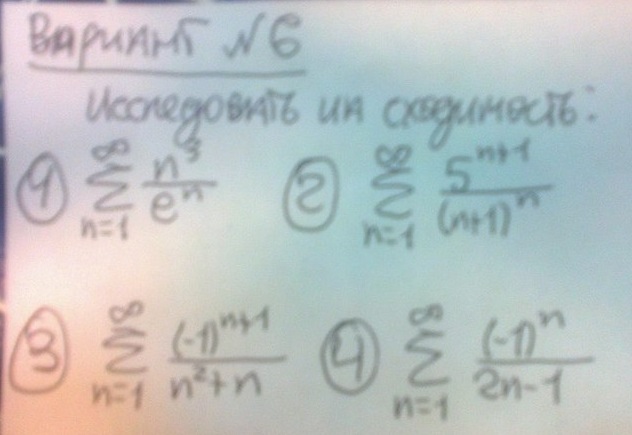 Вариант №6
Исследовать на сходимость:
① $\sum_{n=1}^{\infty} \frac{n^3}{e^n}$ ② $\sum_{n=1}^{\infty} \frac{5^{n+1}}{(n+1)^n}$
③ $\sum_{n=1}^{\infty} \frac{(-1)^{n+1}}{n^2+n}$ ④ $\sum_{n=1}^{\infty} \frac{(-1)^n}{2n-1}$